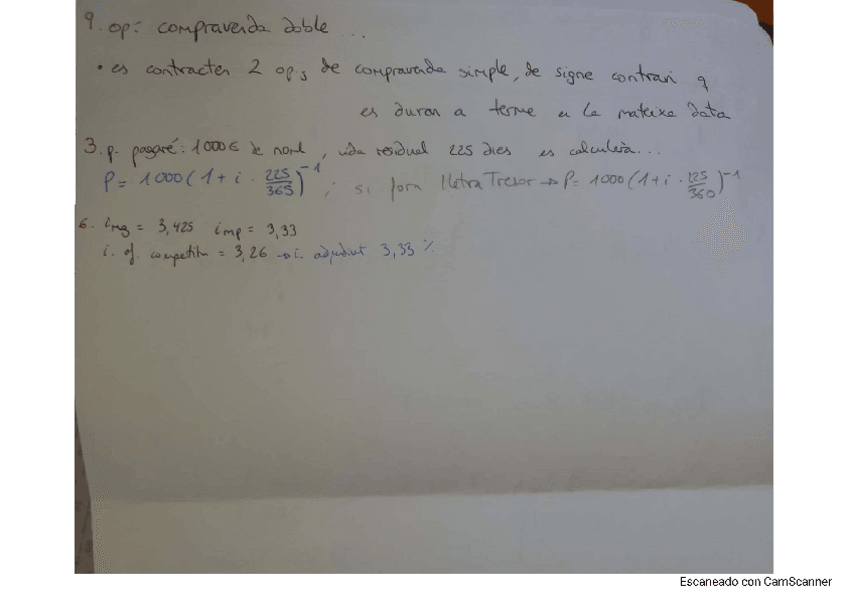 9. op: compravenda doble ...
• es contracten 2 op.s de compravenda simple, de signe contrari q
es duran a terme a la mateixa data
3. p. pagaré: 1000€ de noml, vida residual 225 dies es calcularia...
P = 1000 (1 + i · 225/365)^-1 ; si fora lletra Tresor → P = 1000 (1 + i · 225/360)^-1
6. img = 3,425 imp = 3,33
i. of. competitiva = 3,26 → i. adjudicat 3,33 %
Escaneado con CamScanner